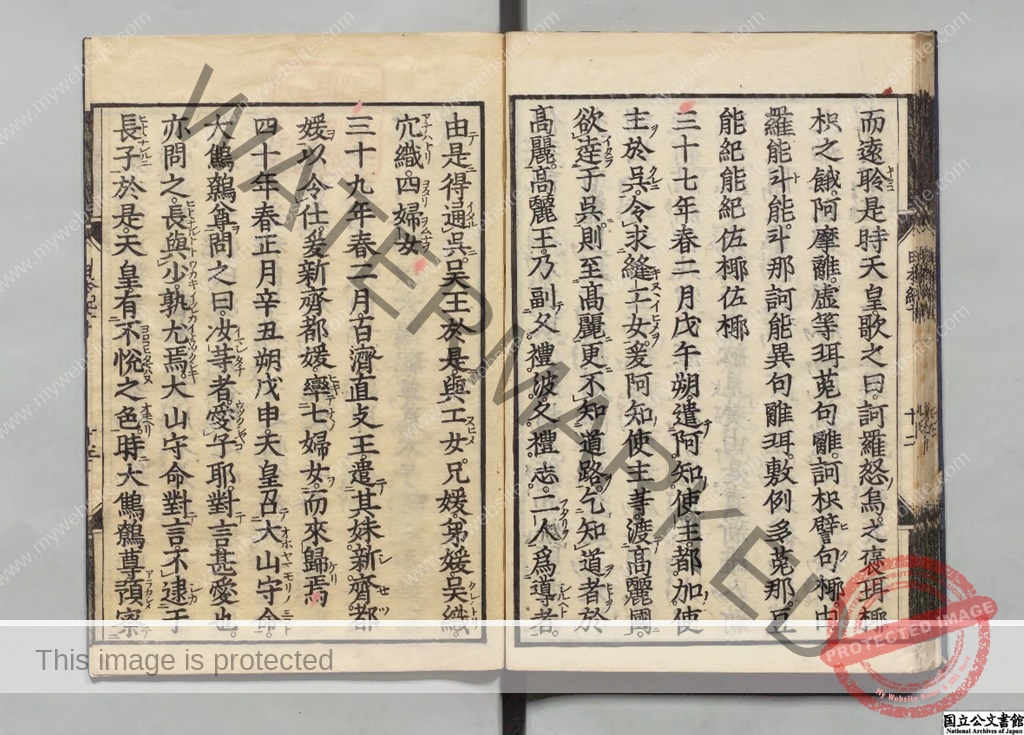 而遠聆是時天皇歌之曰訶羅怒烏之褒珥椰
枳之餓阿摩離虚等珥菟句離訶枳譬句椰由
羅能斗能斗那訶能異句離珥敷例多菟那豆
能紀能紀佐椰佐椰
三十七年春二月戊午朔遣阿知使主都加使
主於呉令求縫工女爰阿知使主等渡高麗國
欲逹于呉則至高麗更不知道路乞知道者於
高麗高麗王乃副久禮波久禮志二人爲導者
由是得通呉呉王於是與工女兄媛弟媛呉織
穴織四婦女
三十九年春二月百濟直支王遣其妹新齊都
媛以令仕爰新齊都媛率七婦女而來歸焉
四十年春正月辛丑朔戊申天皇召大山守命
大鷦鷯尊問之曰汝等者愛子耶對言甚愛也
亦問之長與少孰尤焉大山守命對言不逮于
長子於是天皇有不悅之色時大鷦鷯尊預察
十二
WATERMARKED
This image is protected
PROTECTED IMAGE
My Website Name & URL Here
www.mywebsite.com
国立公文書館
National Archives of Japan